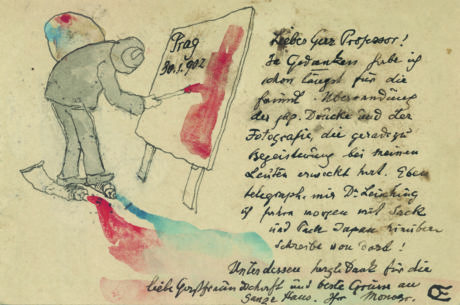 Prag
30.1.902
Lieber Herr Professor!
In Gedanken habe ich
schon längst für die
freundl. Übersendung
der jap. Drucke und der
Fotografie, die geradezu
Begeisterung bei meinen
Leuten erweckt hat. Eben
telegraph. mir Dr. Leisching
morgen mit Sack
und Pack Japan
schreibe von dort!
Unterdessen herzl. Dank für die
liebe Gastfreundschaft und beste Grüsse an
Ganze Haus. Ihr